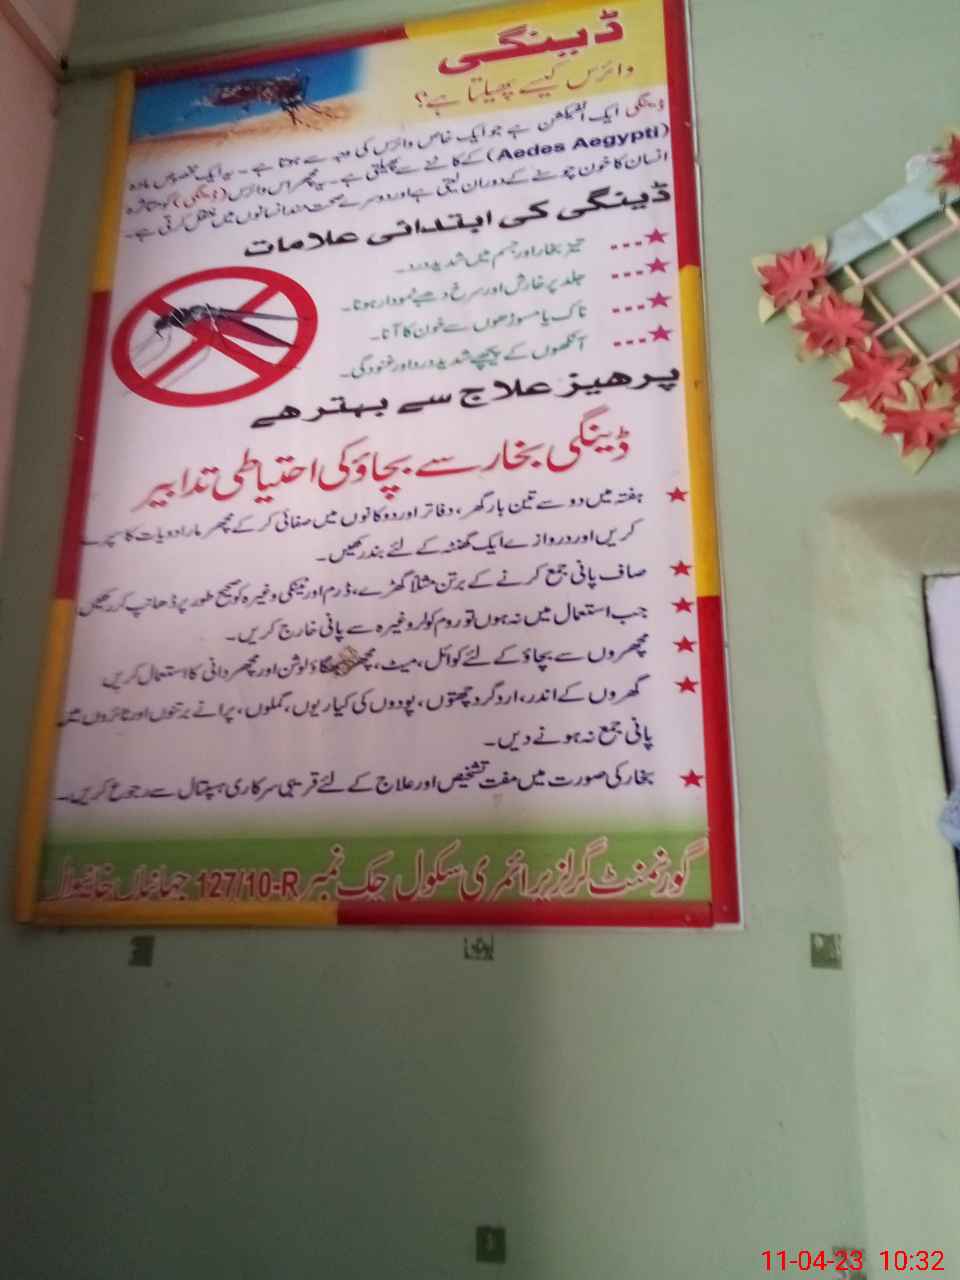 ڈینگی
وائرس کیسے پھیلتا ہے؟
ڈینگی ایک انفیکشن ہے جو ایک خاص وائرس کی وجہ سے ہوتا ہے۔ یہ ایک مخصوص مادہ
(Aedes Aegypti) کے کاٹنے سے پھیلتی ہے۔ یہ مچھر اس وائرس (ڈینگی) کو متاثرہ
انسان کا خون چوسنے کے دوران لیتی ہے اور دوسرے صحت مند انسانوں میں منتقل کرتی ہے۔
ڈینگی کی ابتدائی علامات
تیز بخار اور جسم میں شدید درد۔
جلد پر خارش اور سرخ دھبے نمودار ہونا۔
ناک یا مسوڑھوں سے خون کا آنا۔
آنکھوں کے پیچھے شدید درد اور غنودگی۔
پرھیز علاج سے بہتر ھے
ڈینگی بخار سے بچاؤ کی احتیاطی تدابیر
ہفتہ میں دو سے تین بار گھر، دفاتر اور دوکانوں میں صفائی کر کے مچھر مار ادویات کا سپرے
کریں اور دروازے ایک گھنٹہ کے لئے بند رکھیں۔
صاف پانی جمع کرنے کے برتن مثلاً گھڑے، ڈرم اور ٹینکی وغیرہ کو صحیح طور پر ڈھانپ کر رکھیں
جب استعمال میں نہ ہوں تو روم کولر وغیرہ سے پانی خارج کریں۔
مچھروں سے بچاؤ کے لئے کوائل، میٹ، مچھر بھگاؤ لوشن اور مچھر دانی کا استعمال کریں
گھروں کے اندر، ارد گرد چھتوں، پودوں کی کیاریوں، گملوں، پرانے برتنوں اور ٹائروں میں
پانی جمع نہ ہونے دیں۔
بخار کی صورت میں مفت تشخیص اور علاج کے لئے قریبی سرکاری ہسپتال سے رجوع کریں۔
گورنمنٹ گرلز پرائمری سکول چک نمبر 127/10-R جہانیاں خانیوال
11-04-23 10:32